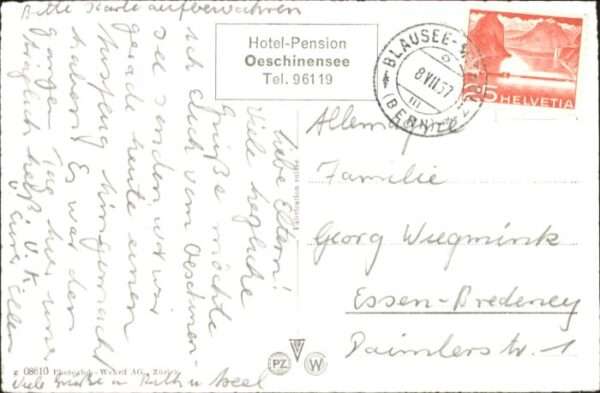 Bitte Karte aufbewahren
Hotel-Pension
Oeschinensee
Tel. 96119
BLAUSEE-
8 VII 57
(BERN)
15 HELVETIA
liebe Eltern!
Viele herzliche
Grüße möchte
ich Euch vom Oeschinen-
see senden, wo wir
gerade heute einen
Ausflug hingemacht
haben. Es war den
ganzen Tag hier
heiß
Viele Grüße
Allemagne
Familie
Georg Wiegmink
Essen-Bredeney
Daimlerstr. 1
08610 Photoglob-Wehrli AG., Zürich
PZ
W